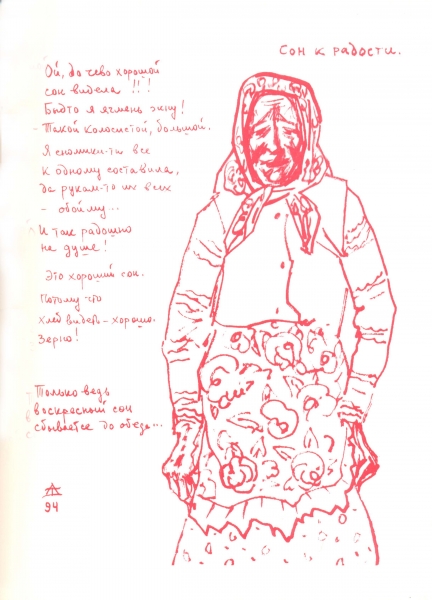 Сон к радости.
Ой, до чево хорошой
сон видела !!!
Быдто я ячмень жну!
Такой колосистой, большой.
Я снопики-ти все
к одному составила,
да рукам-то их всех
– овойму...
И так радошно
на душе!
Это хороший сон.
Потому что
хлеб видеть – хорошо.
Зерно!
Только ведь
воскрасной сон
сбываетсе до обеда...
94